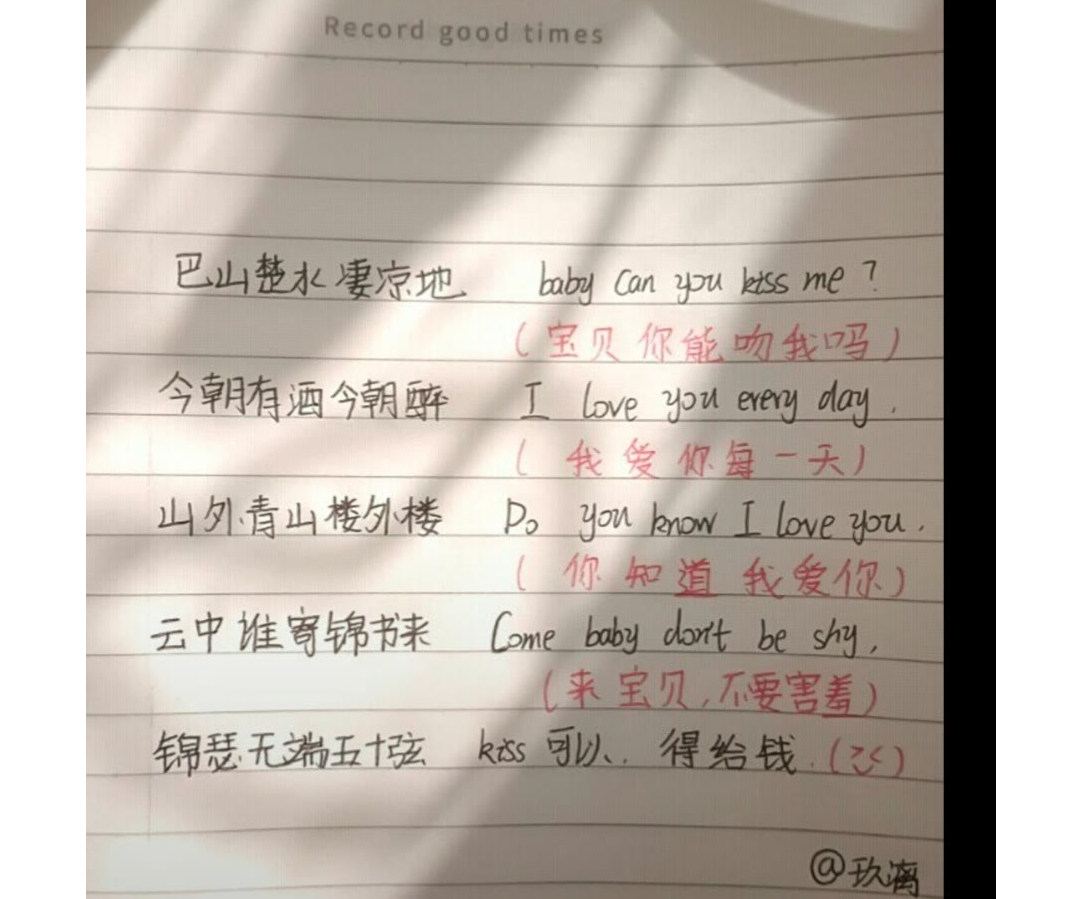 Record good times
巴山楚水凄凉地 baby can you kiss me ?
(宝贝你能吻我吗)
今朝有酒今朝醉 I love you every day .
(我爱你每一天)
山外青山楼外楼 Do you know I love you .
(你知道我爱你)
云中谁寄锦书来 Come baby don't be shy ,
(来宝贝,不要害羞)
锦瑟无端五十弦 kiss 可以, 得给钱.
@玖漓